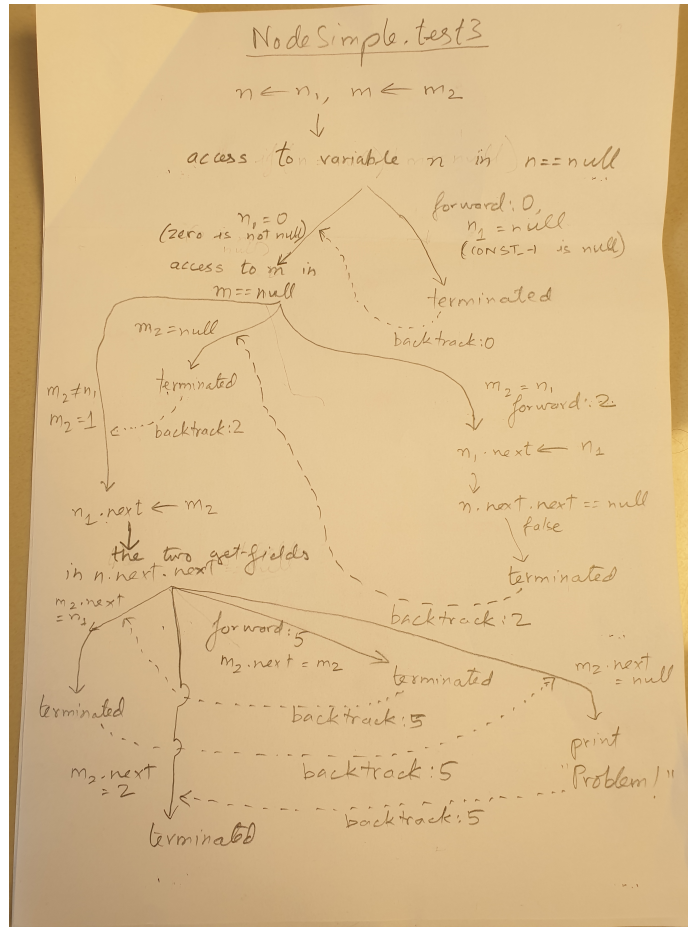 NodeSimple.test3
n ← n₁, m ← m₂
access to variable n in n==null
n₁ = 0
(zero is not null)
forward: 0,
n₁ = null
(CONST-1 is null)
access to m in
m==null
terminated
backtrack:0
m₂=null
terminated
backtrack:2
m₂≠n₁
m₂=1
m₂ = n₁
forward: 2
n₁.next ← n₁
n.next.next == null
false
terminated
backtrack:2
n₁.next ← m₂
the two get-fields
in n.next.next
m₂.next
= n₁
terminated
forward:5
m₂.next = m₂
terminated
backtrack:5
m₂.next
= null
print
"Problem!"
backtrack:5
m₂.next
= 2
backtrack:5
terminated